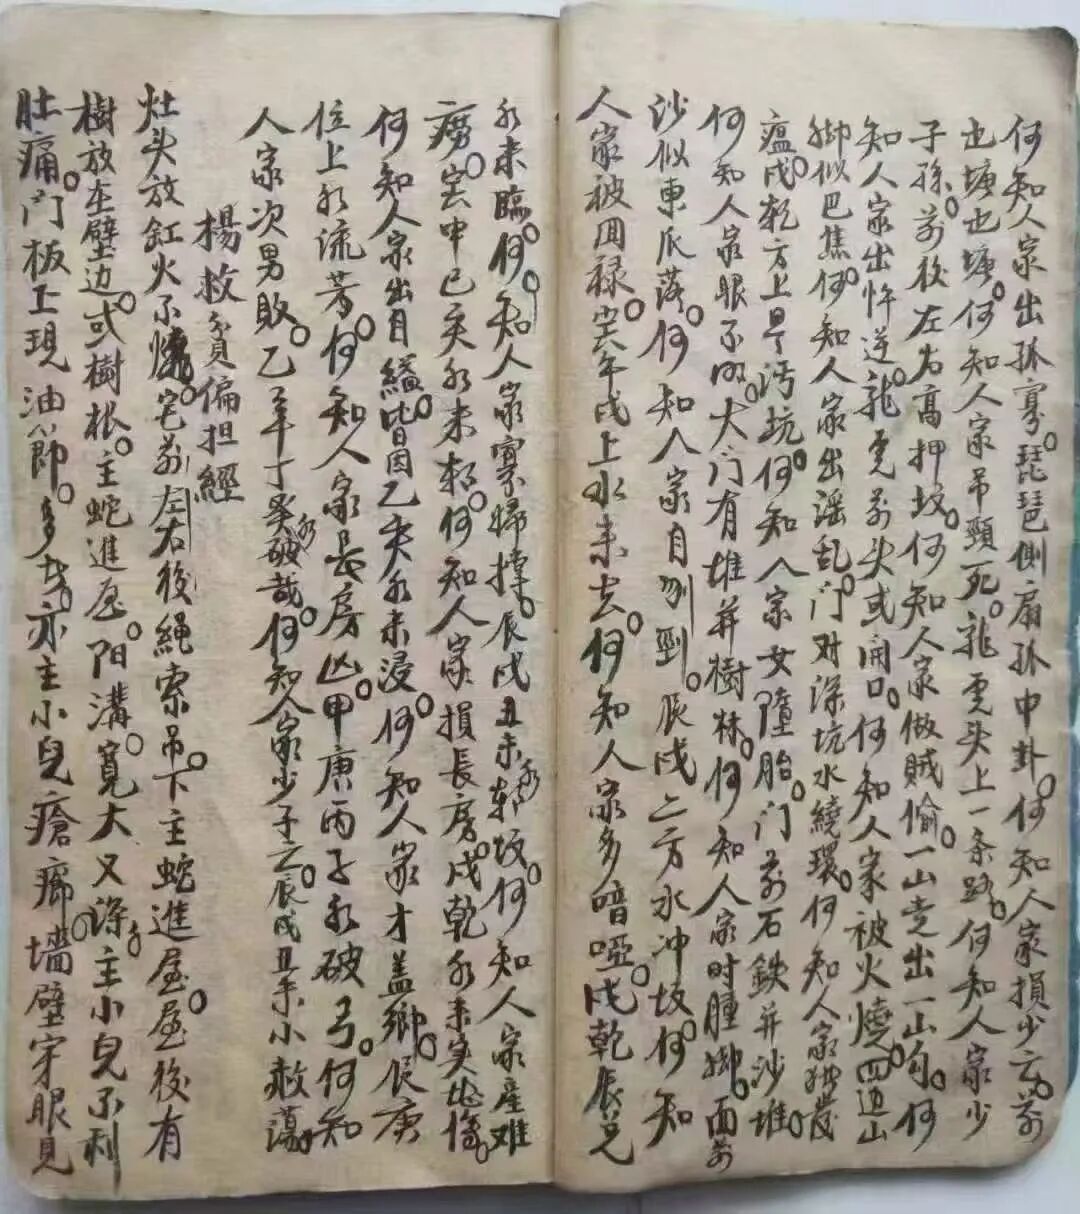 何知人家出孤寡。琵琶側扇孤中卦。何知人家損少亡。前
也塘也塘。何知人家吊頸死。龍虎头上一条路。何知人家少
子孫。前後左右高押坟。何知人家做贼偷。一山走出一山勾。何
知人家出忤逆。龍虎前头或開口。何知人家被火燒。四边山
脚似巴焦。何知人家出淫乱。门对深坑水繞環。何知人家
瘟。戌乾方上是污坑。何知人家女墮胎。门前石鉄并沙堆。
何知人家眼不明。大门有堆并樹林。何知人家时腫脚。面前
沙似東瓜落。何知人家自刎剄。辰戌二方水冲坟。何知
人家被回禄。年戌上水来去。何知人家多喑啞。戌乾辰兄
水来臨。何知人家寡婦撑。辰戌丑未水坟。何知人家産难
癆。寅申巳亥水来。何知人家損長房。戌乾水来
何知人家出自縊。皆因乙亥水来浸。何知人家才盖鄉。辰庚
位上水流芳。何知人家長房凶。甲庚丙子水破弓。何知
人家次男敗。乙辛丁癸水破哉。何知人家少子亡。辰戌丑未小救蕩。
楊救貧偏担經
灶头放缸火不燒。宅前左右後繩索吊。下主蛇進屋。屋後有
樹放在壁边。或樹根。主蛇進屋。阳溝。寬大又深。主小兒不利
肚痛。门板上現油節。多才。亦主小兒瘡癤。墻壁穿眼見